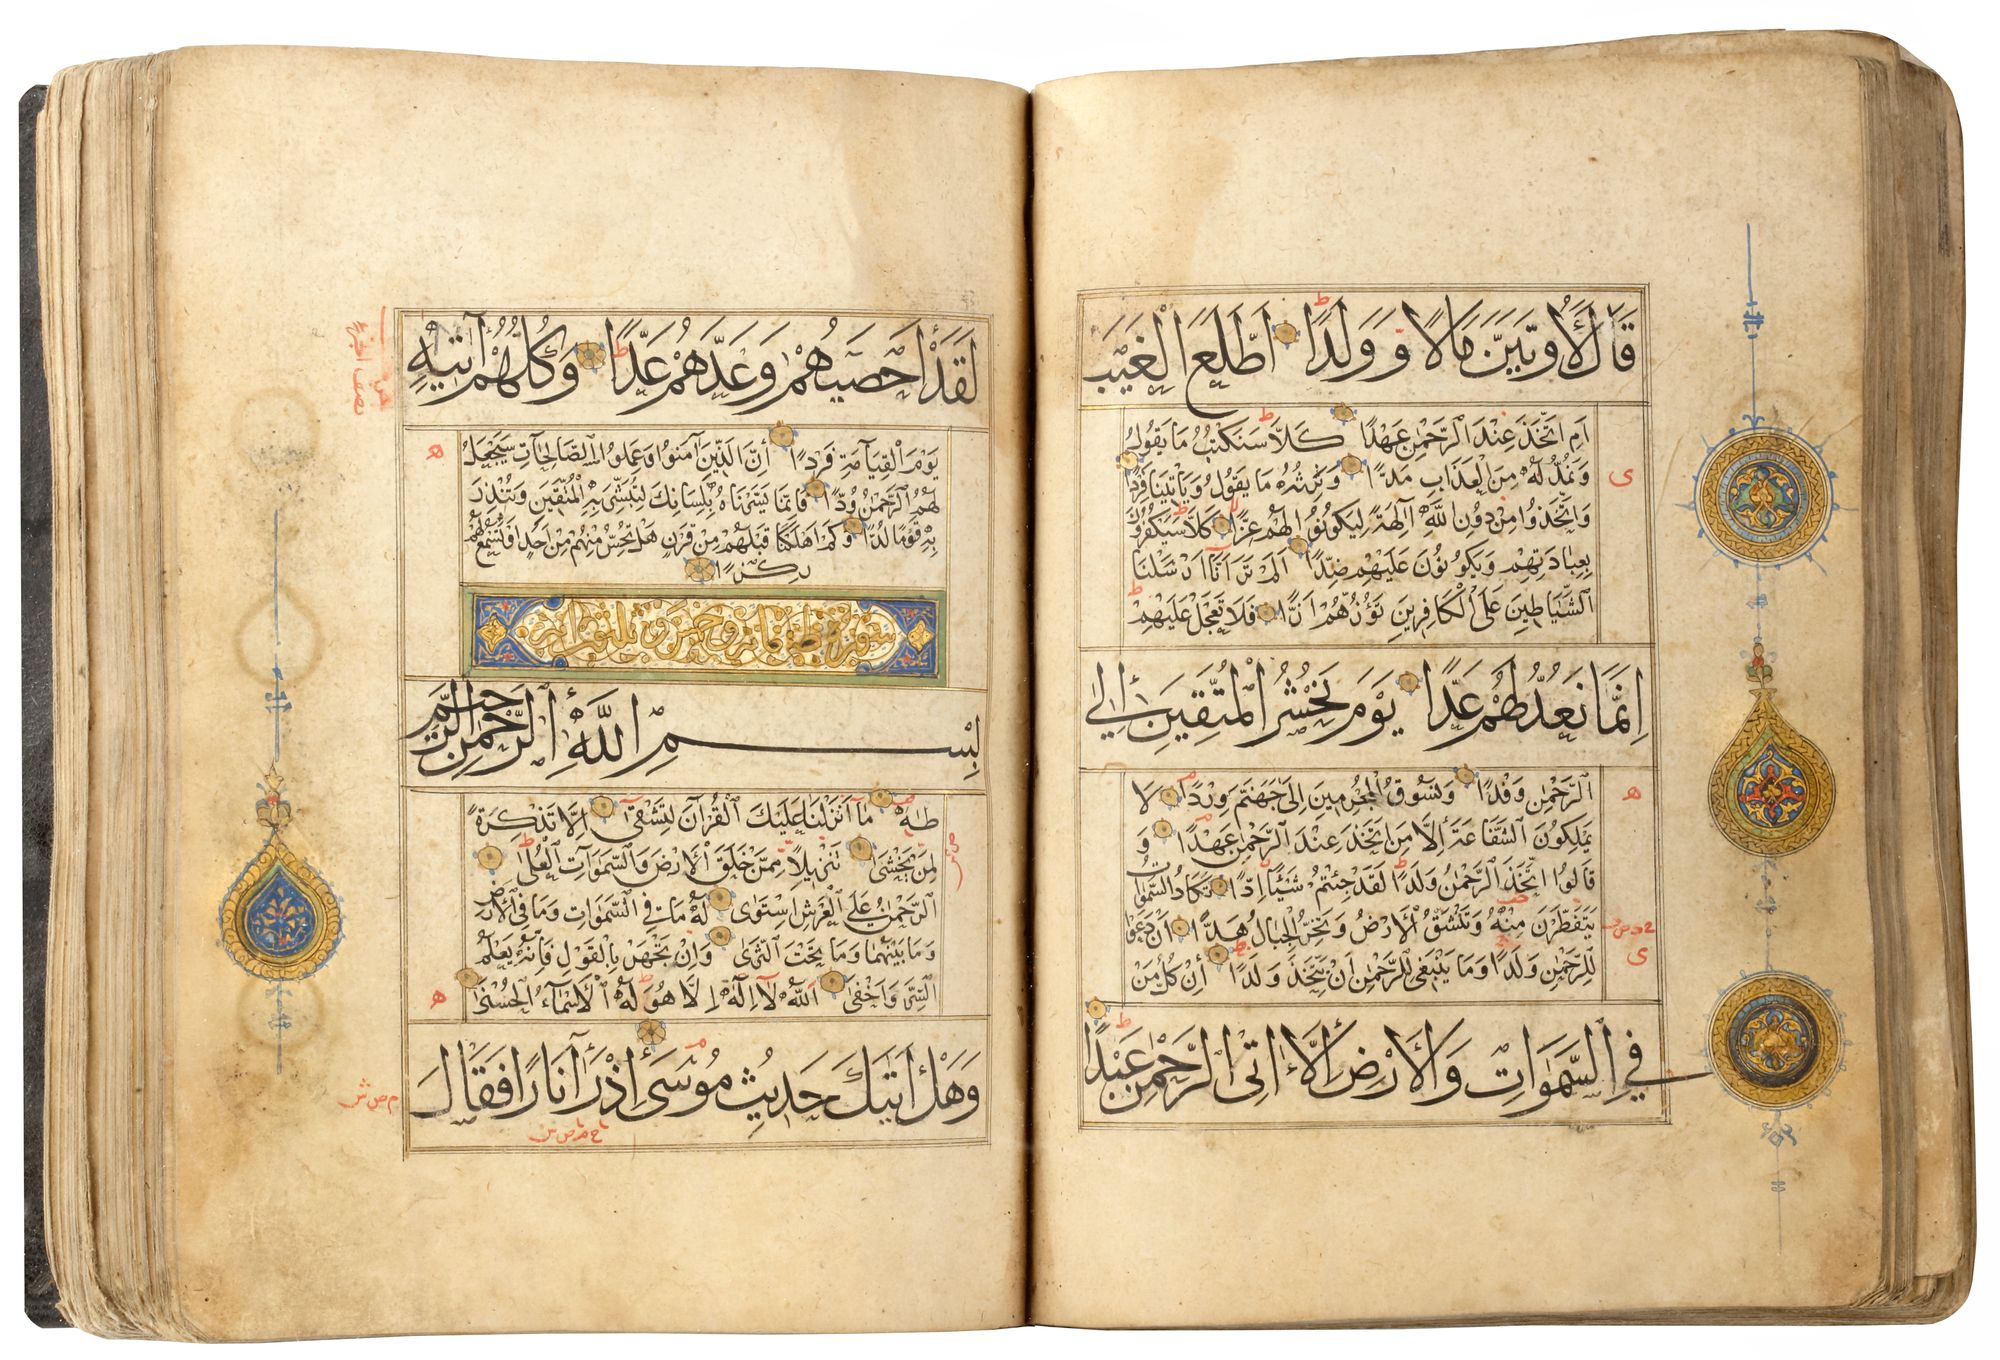 قَالَ لَأُوتَيَنَّ مَالًا وَوَلَدًا اَطَّلَعَ الْغَيْبَ
اَمِ اتَّخَذَ عِنْدَ الرَّحْمٰنِ عَهْدًا كَلَّا سَنَكْتُبُ مَا يَقُولُ
وَنَمُدُّ لَهُ مِنَ الْعَذَابِ مَدًّا وَنَرِثُهُ مَا يَقُولُ وَيَاْتِينَا فَرْدًا
وَاتَّخَذُوا مِنْ دُونِ اللَّهِ اٰلِهَةً لِيَكُونُوا لَهُمْ عِزًّا كَلَّا سَيَكْفُرُونَ
بِعِبَادَتِهِمْ وَيَكُونُونَ عَلَيْهِمْ ضِدًّا اَلَمْ تَرَ اَنَّا اَرْسَلْنَا
الشَّيَاطِينَ عَلَى الْكَافِرِينَ تَؤُزُّهُمْ اَزًّا فَلَا تَعْجَلْ عَلَيْهِمْ
اِنَّمَا نَعُدُّ لَهُمْ عَدًّا يَوْمَ نَحْشُرُ الْمُتَّقِينَ اِلَى
الرَّحْمٰنِ وَفْدًا وَنَسُوقُ الْمُجْرِمِينَ اِلَى جَهَنَّمَ وِرْدًا لَا
يَمْلِكُونَ الشَّفَاعَةَ اِلَّا مَنِ اتَّخَذَ عِنْدَ الرَّحْمٰنِ عَهْدًا وَ
قَالُوا اتَّخَذَ الرَّحْمٰنُ وَلَدًا لَقَدْ جِئْتُمْ شَيْئًا اِدًّا تَكَادُ السَّمٰوَاتُ
يَتَفَطَّرْنَ مِنْهُ وَتَنْشَقُّ الْاَرْضُ وَتَخِرُّ الْجِبَالُ هَدًّا اَنْ دَعَوْا
لِلرَّحْمٰنِ وَلَدًا وَمَا يَنْبَغِى لِلرَّحْمٰنِ اَنْ يَتَّخِذَ وَلَدًا اِنْ كُلُّ مَنْ
فِي السَّمٰوَاتِ وَالْاَرْضِ اِلَّا اٰتِى الرَّحْمٰنِ عَبْدًا
لَقَدْ اَحْصٰيهُمْ وَعَدَّهُمْ عَدًّا وَكُلُّهُمْ اٰتِيهِ
يَوْمَ الْقِيَامَةِ فَرْدًا اِنَّ الَّذِينَ اٰمَنُوا وَعَمِلُوا الصَّالِحَاتِ سَيَجْعَلُ
لَهُمُ الرَّحْمٰنُ وُدًّا فَاِنَّمَا يَسَّرْنَاهُ بِلِسَانِكَ لِتُبَشِّرَ بِهِ الْمُتَّقِينَ وَتُنْذِرَ
بِهِ قَوْمًا لُدًّا وَكَمْ اَهْلَكْنَا قَبْلَهُمْ مِنْ قَرْنٍ هَلْ تُحِسُّ مِنْهُمْ مِنْ اَحَدٍ اَوْ تَسْمَعُ لَهُمْ
رِكْزًا
بِسْمِ اللَّهِ الرَّحْمٰنِ الرَّحِيمِ
طٰهٰ مَا اَنْزَلْنَا عَلَيْكَ الْقُرْاٰنَ لِتَشْقٰى اِلَّا تَذْكِرَةً
لِمَنْ يَخْشٰى تَنْزِيلًا مِمَّنْ خَلَقَ الْاَرْضَ وَالسَّمٰوَاتِ الْعُلٰى
الرَّحْمٰنُ عَلَى الْعَرْشِ اسْتَوٰى لَهُ مَا فِي السَّمٰوَاتِ وَمَا فِي الْاَرْضِ
وَمَا بَيْنَهُمَا وَمَا تَحْتَ الثَّرٰى وَاِنْ تَجْهَرْ بِالْقَوْلِ فَاِنَّهُ يَعْلَمُ
السِّرَّ وَاَخْفٰى اللَّهُ لَا اِلٰهَ اِلَّا هُوَ لَهُ الْاَسْمَاءُ الْحُسْنٰى
وَهَلْ اَتٰيكَ حَدِيثُ مُوسٰى اِذْ رَاٰ نَارًا فَقَالَ